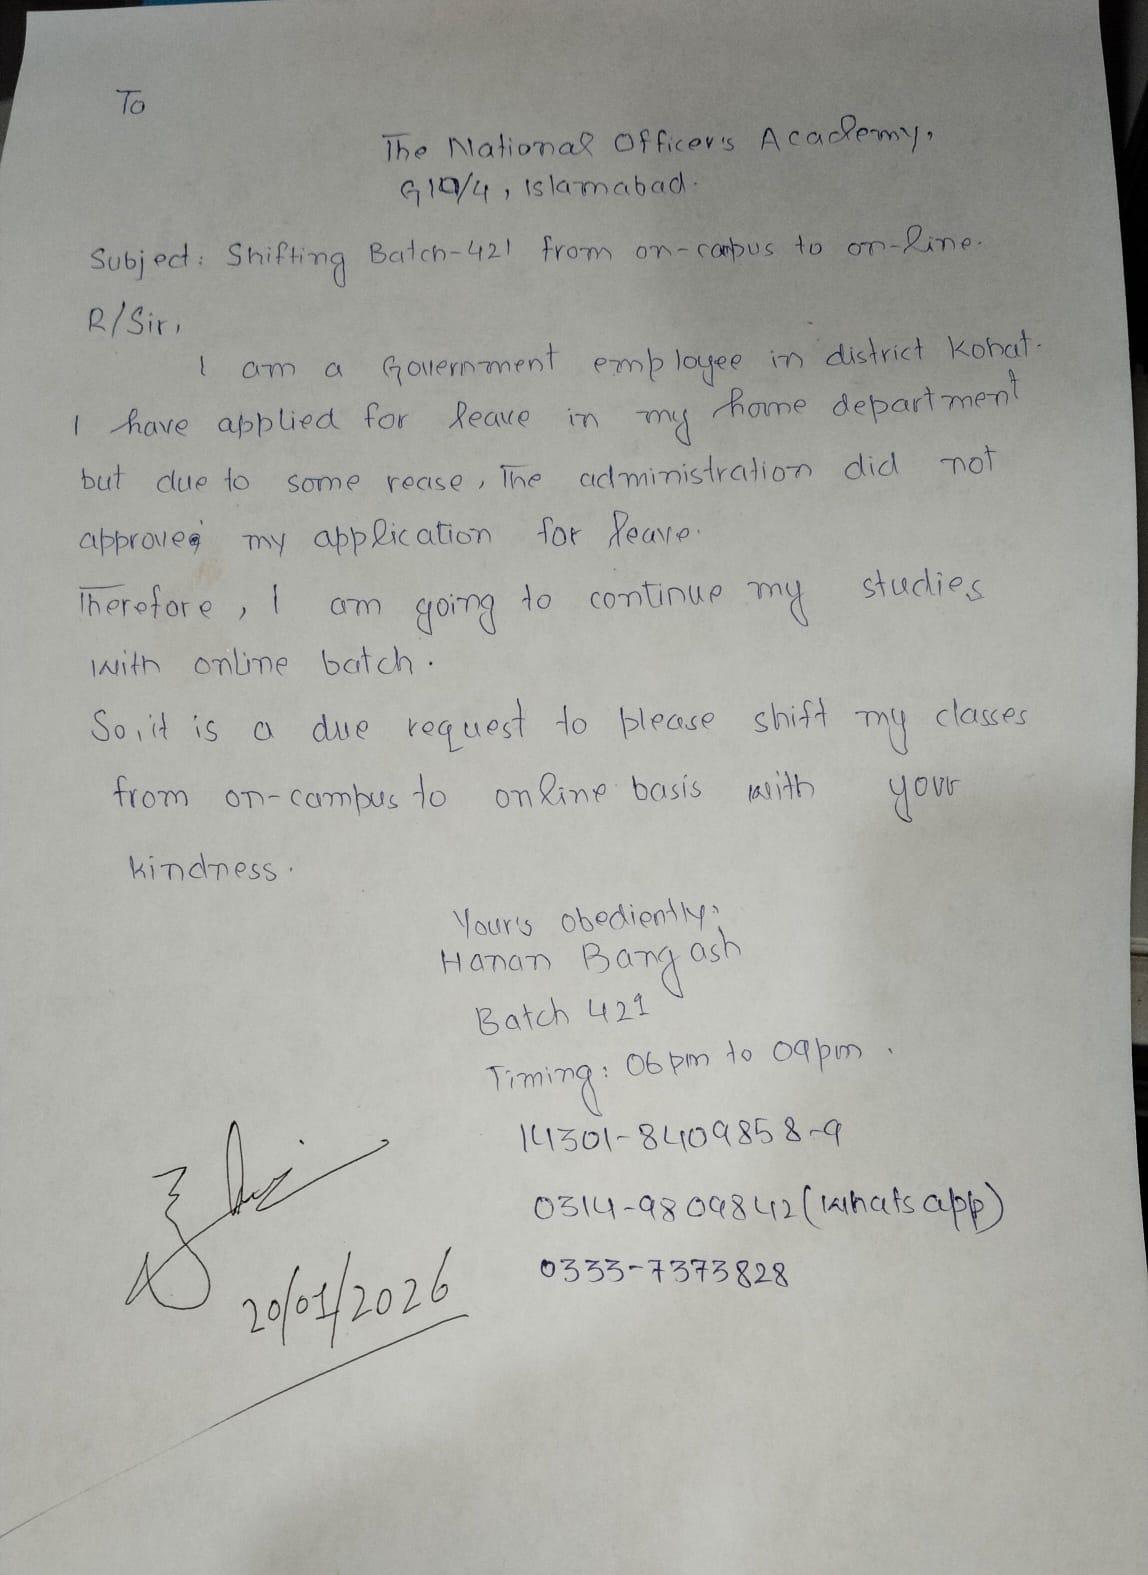 To
The National Officer's Academy,
G10/4, Islamabad.
Subject: Shifting Batch-421 from on-campus to on-line.
R/Sir,
I am a Government employee in district Kohat.
I have applied for leave in my home department
but due to some rease, The administration did not
approved my application for leave.
Therefore, I am going to continue my studies
with online batch.
So, it is a due request to please shift my classes
from on-campus to online basis with your
kindness.
Your's obediently,
Hanan Bangash
Batch 421
Timing: 06 pm to 09 pm.
14301-8409858-9
0314-9809842 (whatsapp)
0333-7373828
20/01/2026